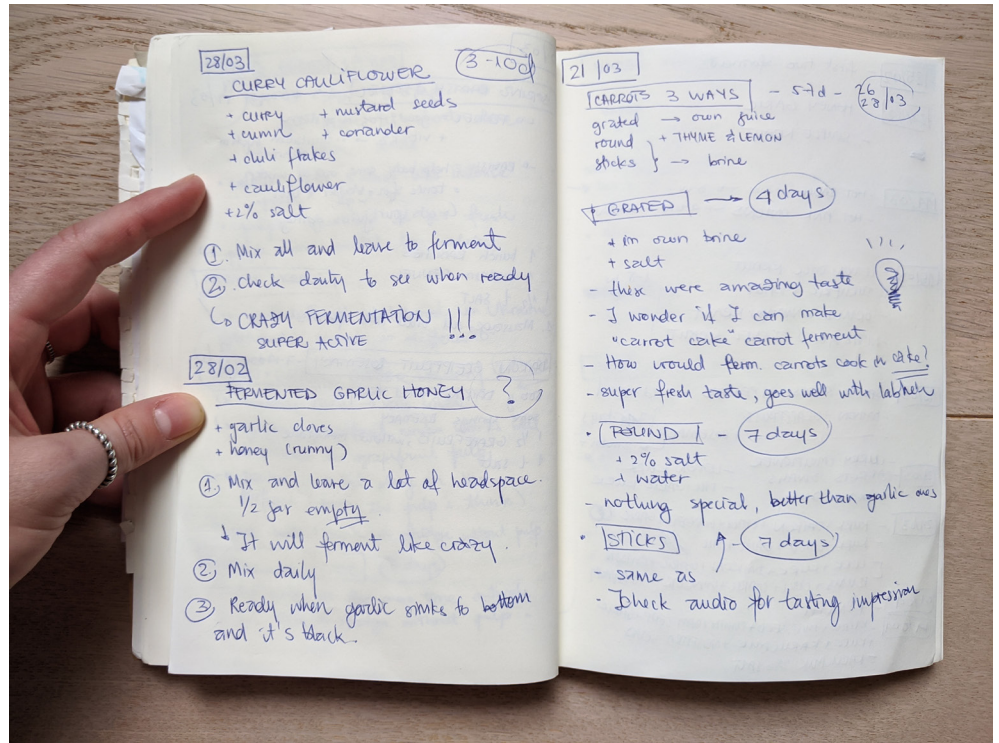 28/03
3-10d
CURRY CAULIFLOWER
+ curry + mustard seeds
+ cumin + coriander
+ chili flakes
+ cauliflower
+2% salt
1. Mix all and leave to ferment
2. Check daily to see when ready
↳ CRAZY FERMENTATION !!!
SUPER ACTIVE
28/02
FERMENTED GARLIC HONEY ?
+ garlic cloves
+ honey (runny)
1. Mix and leave a lot of headspace.
1/2 jar empty.
↓ It will ferment like crazy.
2. Mix daily
3. Ready when garlic sinks to bottom
and it's black.
21/03
CARROTS 3 WAYS - 5-7d - 26
28/03
grated → own juice
round + THYME & LEMON
sticks } → brine
GRATED → 4 days
+ in own brine
+ salt
- these were amazing taste
- I wonder if I can make
"carrot cake" carrot ferment
- How would ferm. carrots cook in cake?
- super fresh taste, goes well with labneh
· ROUND - 7 days
+ 2% salt
+ water
- nothing special, better than garlic ones
· STICKS - 7 days
- same as ↑
- Check audio for tasting impression